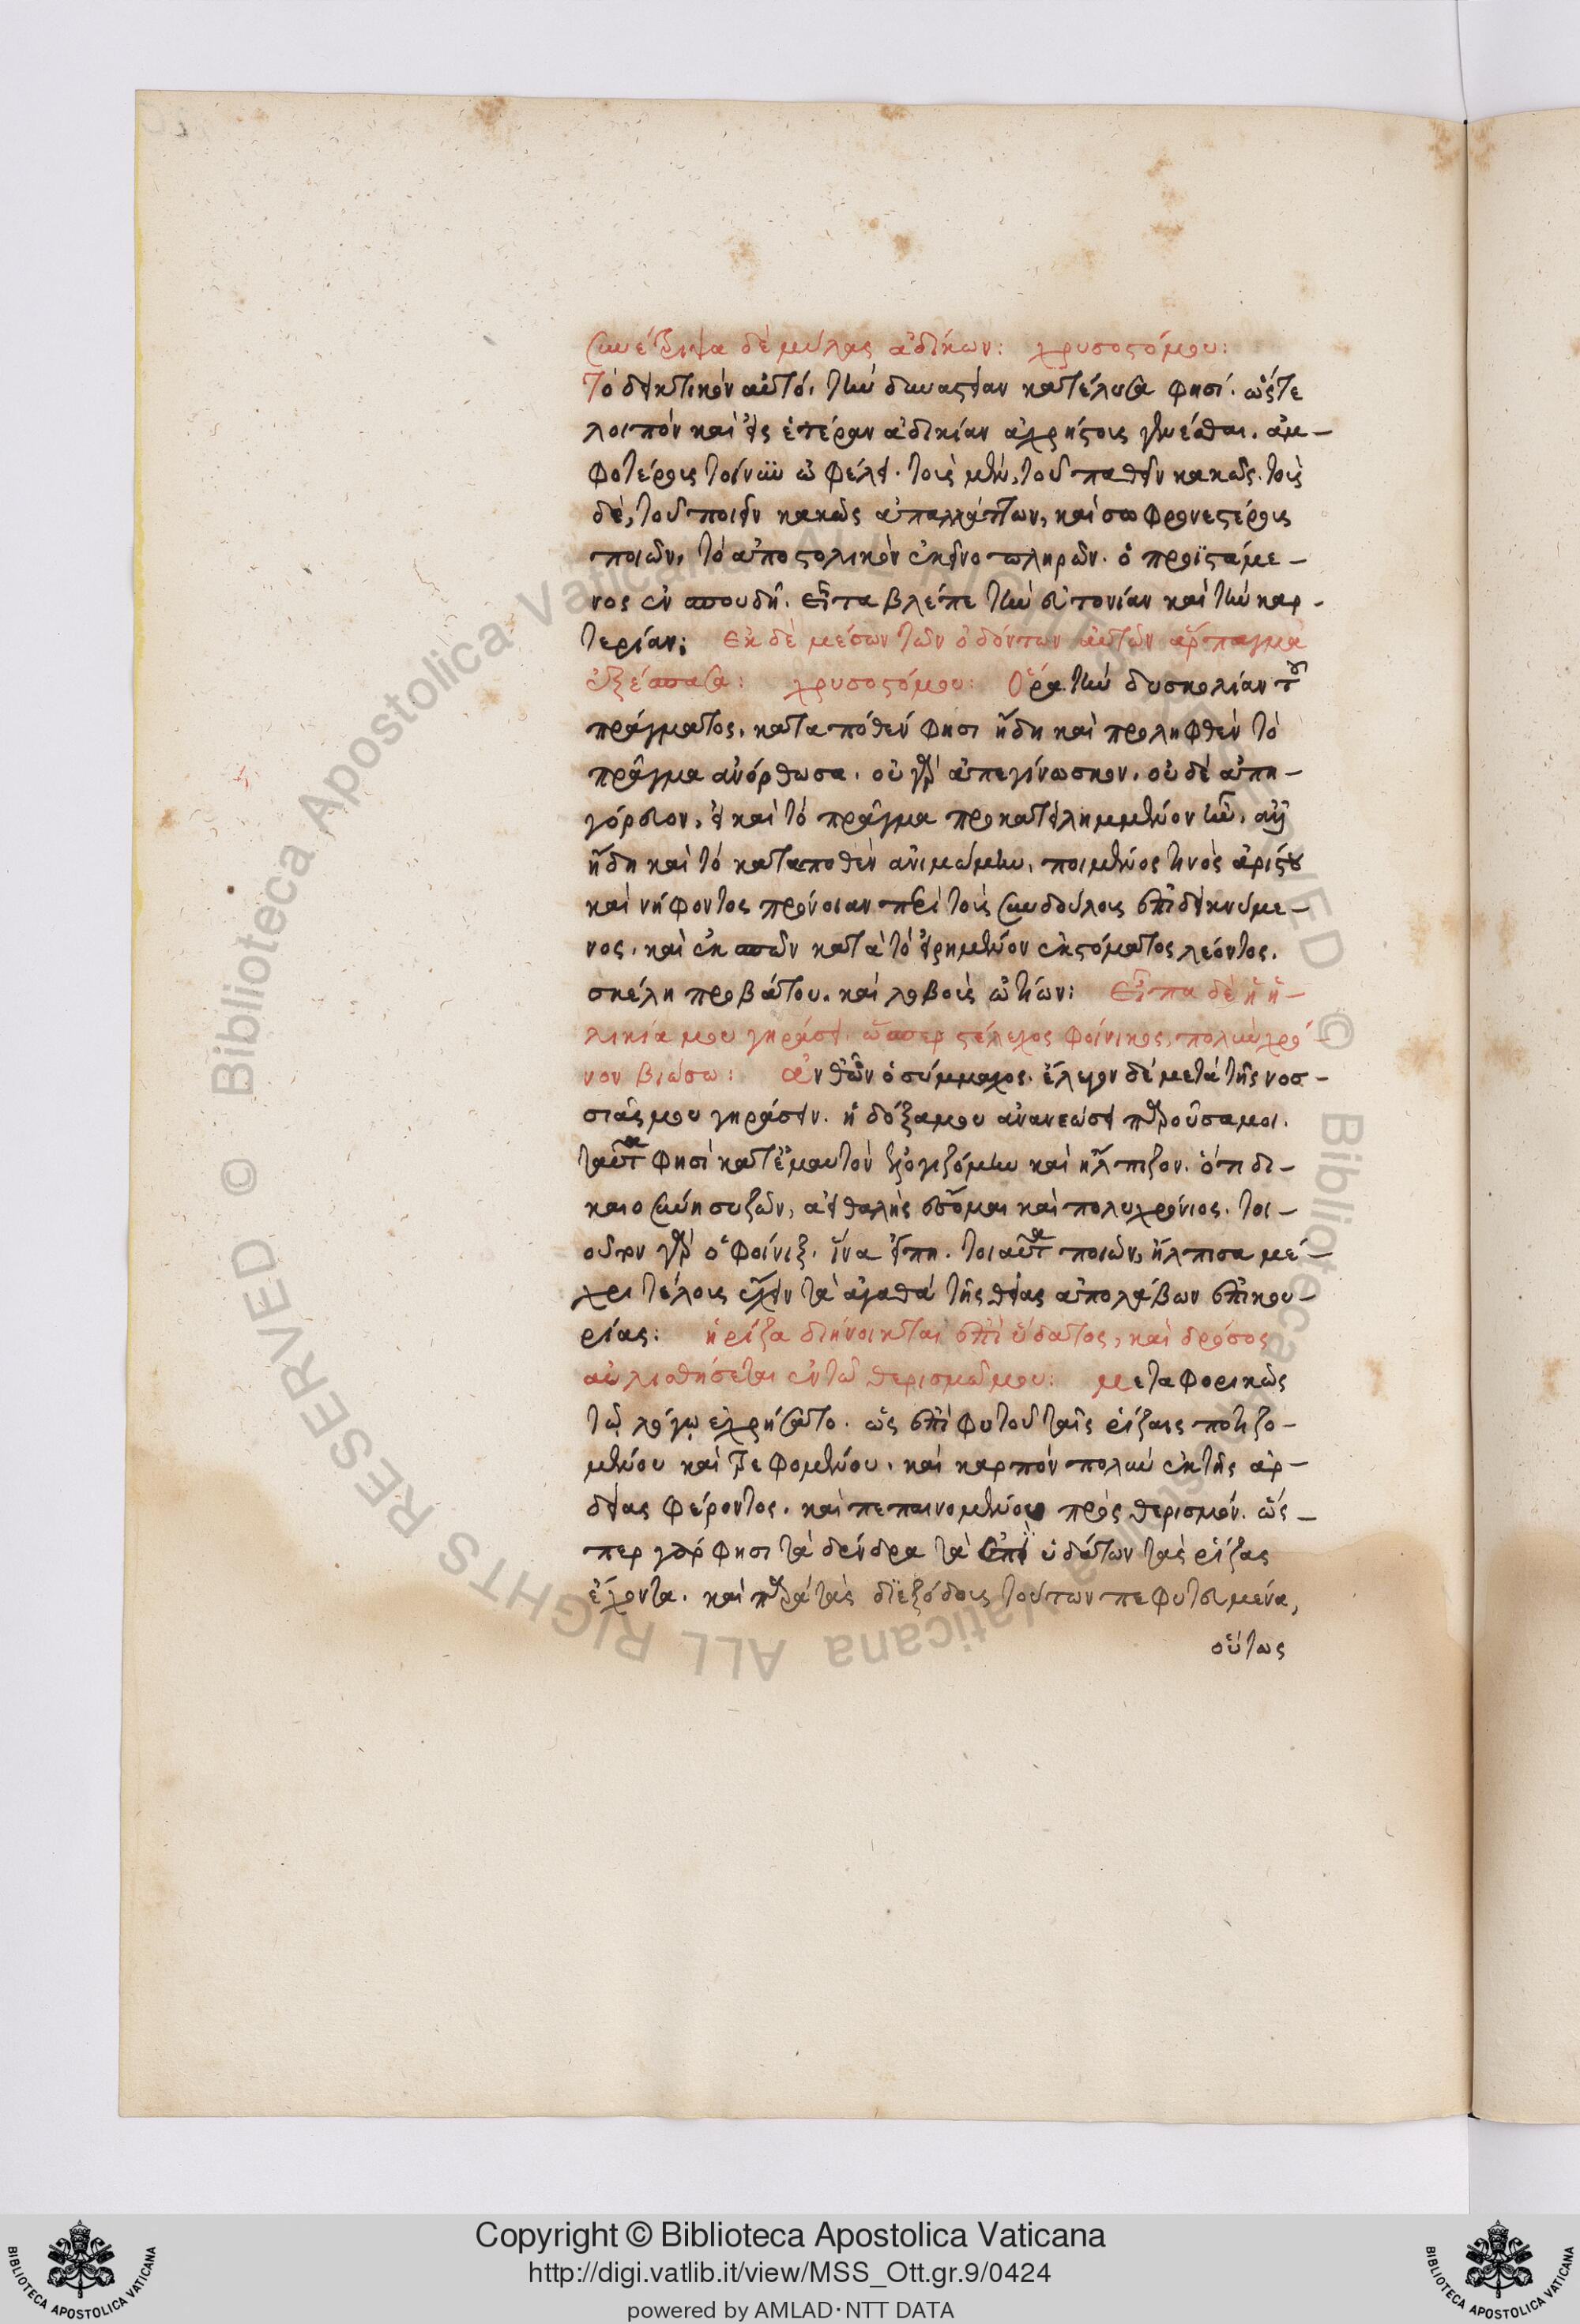 συνέτριψα δὲ μύλας ἀδίκων: χρυσοστόμου:
Τὸ δηκτικὸν αὐτό, τὴν δυναστείαν κατέλυσα φησί. ὥστε
λοιπὸν καὶ εἰς ἑτέραν ἀδικίαν ἀχρήστους γενέσθαι. ἀμ-
φοτέρους τοίνυν ὠφέλει. τοὺς μὲν, τοῦ παθεῖν κακῶς. τοὺς
δὲ, τοῦ ποιεῖν κακῶς ἀπαλλάττων, καὶ σωφρονεστέρους
ποιῶν, τὸ ἀποστολικὸν ἐκεῖνο πληρῶν. ὁ προϊστάμε-
νος ἐν σπουδῇ. εἶτα βλέπε τὴν εὐτονίαν καὶ τὴν καρ-
τερίαν; Ἐκ δὲ μέσων τῶν ὀδόντων αὐτῶν ἅρπαγμα
ἐξέσπασα: χρυσοστόμου: Ὅρα τὴν δυσκολίαν τοῦ
πράγματος, καταποθέν φησι ἤδη καὶ προληφθὲν τὸ
πρᾶγμα ἀνόρθωσα. οὐ γὰρ ἀπεγίνωσκον. οὐδὲ ἀπη-
γόρευον, εἰ καὶ τὸ πρᾶγμα προκατειλημμένον ἦν. ἀλλ'
ἤδη καὶ τὸ καταποθὲν ἀνιμώμην, ποιμένος τινὸς ἀρίστου
καὶ νήφοντος πρόνοιαν περὶ τοὺς συνδούλους ἐπιδεικνύμε-
νος. καὶ ἐκσπῶν κατὰ τὸ εἰρημένον ἐκ στόματος λέοντος.
σκέλη προβάτου. καὶ λοβοὺς ὠτίων: Εἶπα δὲ ἡ ἡ-
λικία μου γηράσει. ὥσπερ στέλεχος φοίνικος, πολὺν χρό-
νον βιώσω: ἀνθ' ὧν ὁ σύμμαχος. ἔλεγον δὲ μετὰ τῆς νοσ-
σιᾶς μου γηράσειν. ἡ δόξα μου ἀνανεώσει παροῦσα μοι.
ταῦτα φησὶ κατ' ἐμαυτὸν ἐλογιζόμην καὶ ἤλπιζον. ὅτι δι-
καιοσύνῃ συζῶν, ἀειθαλὴς ἔσομαι καὶ πολυχρόνιος. τοι-
οῦτον γὰρ ὁ φοίνιξ. ἵνα εἴπῃ. τοιαῦτα ποιῶν, ἤλπισα μέ-
χρι τέλους ἔχειν τὰ ἀγαθὰ τῆς θείας ἀπολαύων ἐπικου-
ρίας: ἡ ῥίζα διήνοικται ἐπὶ ὕδατος, καὶ δρόσος
αὐλισθήσεται ἐν τῷ θερισμῷ μου: μεταφορικῶς
τῷ λόγῳ ἐχρήσατο. ὡς ἐπὶ φυτοῦ ταῖς ῥίζαις ποτιζο-
μένου καὶ τρεφομένου. καὶ καρπὸν πολὺν ἐκ τῆς ἀρ-
δείας φέροντος. καὶ πεπαινομένου πρὸς θερισμόν. ὥσ-
περ γάρ φησι τὰ δένδρα τὰ ἐπὶ ὑδάτων τὰς ῥίζας
ἔχοντα. καὶ παρὰ τὰς διεξόδους τούτων πεφυτευμένα,
οὕτως
Copyright © Biblioteca Apostolica Vaticana
http://digi.vatlib.it/view/MSS_Ott.gr.9/0424
powered by AMLAD·NTT DATA